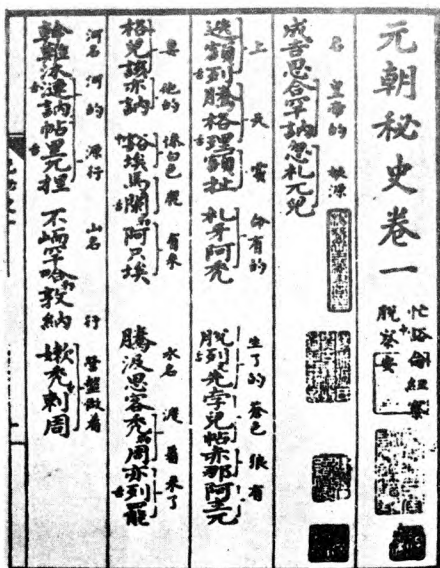 元朝秘史卷一
忙豁侖紐察
脫察安
名 皇帝的 根源
成吉思合罕訥忽札兀兒
上 天 處 命有的 生了的 蒼色 狼 有
迭額列騰格理額扯 札牙阿禿 脫列先孛兒帖赤那阿主兀
妻 他的 慘白色 鹿 有來 水名 渡着 來了
格兒該亦訥 豁埃馬闌勒阿只埃 騰汲思客禿勒周亦列罷
河名 河的 源行 山名 行 營盤做着
斡難沐漣訥帖里兀捏 不峏罕哈勒敦納 嫩禿剌周